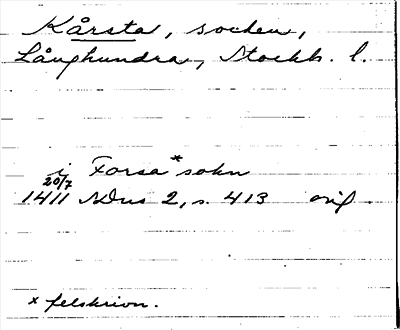 Kårsta, socken,
Långhundra, Stockh. l.
i Forsa* sokn
20/7
1411 NDns 2, s. 413 orig.
x felskrivn.